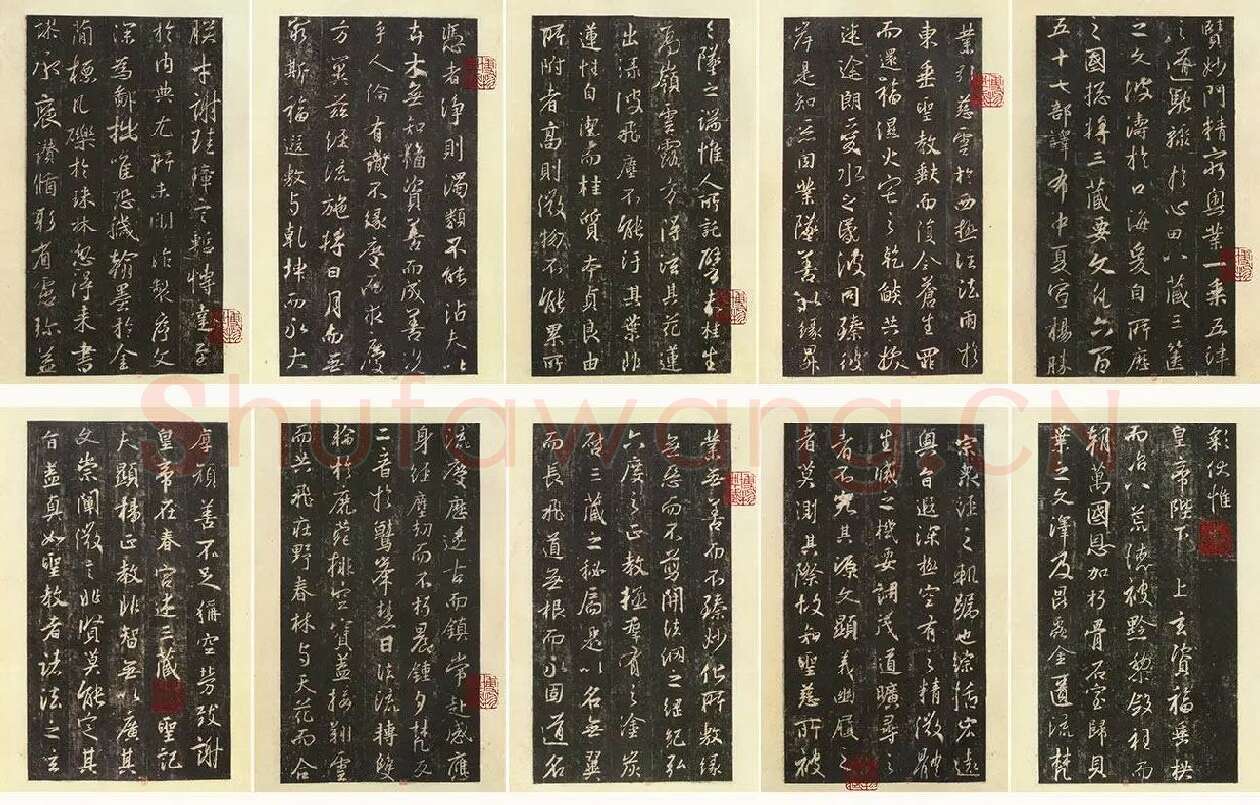 賢妙門精窮奧業一乘五律
之道馳驟於心田八藏三篋
之文波濤於口海爰自所歷
之國總將三藏要文凡六百
五十七部譯布中夏宣揚勝
業引慈雲於西極注法雨於
東垂聖教缺而復全蒼生罪
而還福濕火宅之乾燄共拔
迷途朗愛水之昏波同臻彼
岸是知惡因業墜善以緣昇
之墜之端惟人所託譬夫桂生
高嶺雲露方得泫其花蓮
出淥波飛塵不能汙其葉非
蓮性自潔而桂質本貞良由
所附者高則微物不能累所
憑者淨則濁類不能沾夫以
卉木無知猶資善而成善況
乎人倫有識不緣慶而求慶
方冀茲經流施將日月而無
窮斯福遐敷與乾坤而永大
朕才謝珪璋言慚博達至
於內典尤所未閑昨製序文
深為鄙拙唯恐穢翰墨於金
簡標瓦礫於珠林忽得來書
謬承褒讚循躬省慮彌益
彩伏惟
皇帝陛下 上玄資福垂拱
而治八荒德被黔黎斂衽而
朝萬國恩加朽骨石室歸貝
葉之文澤及昆蟲金匱流梵
宗眾經之軌躅也綜括宏遠
奧旨遐深極空有之精微體
生滅之機要詞茂道曠尋之
者不究其源文顯義幽履之
者莫測其際故知聖慈所被
業無善而不臻妙化所敷緣
無惡而不剪開法網之綱紀弘
六度之正教拯群有之塗炭
啟三藏之秘扃是以名無翼
而長飛道無根而永固道名
流慶歷遂古而鎮常赴感應
身經塵劫而不朽晨鐘夕梵交
二音於鷲峯慧日法流轉雙
輪於鹿菀排空寶蓋接翔雲
而共飛莊野春林與天花而合
厚顏善不足稱空勞致謝
皇帝在春宮述三藏 聖記
夫顯揚正教非智無以廣其
文崇闡微言非賢莫能定其
旨蓋真如聖教者諸法之玄
Shufawang.CN